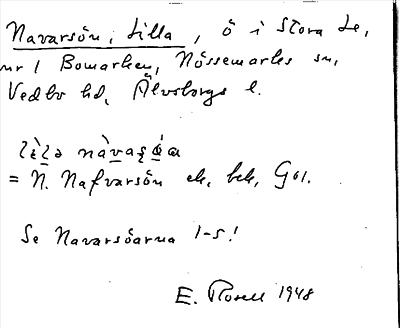 Navarsön, Lilla, ö i Stora Le,
nr 1 Bomarken, Nössemarks sn,
Vedbo hd, Älvsborgs l.
= N. Nafvarsön ek. bek, G61.
Se Navarsöarna 1-5!
E. Rosell 1948